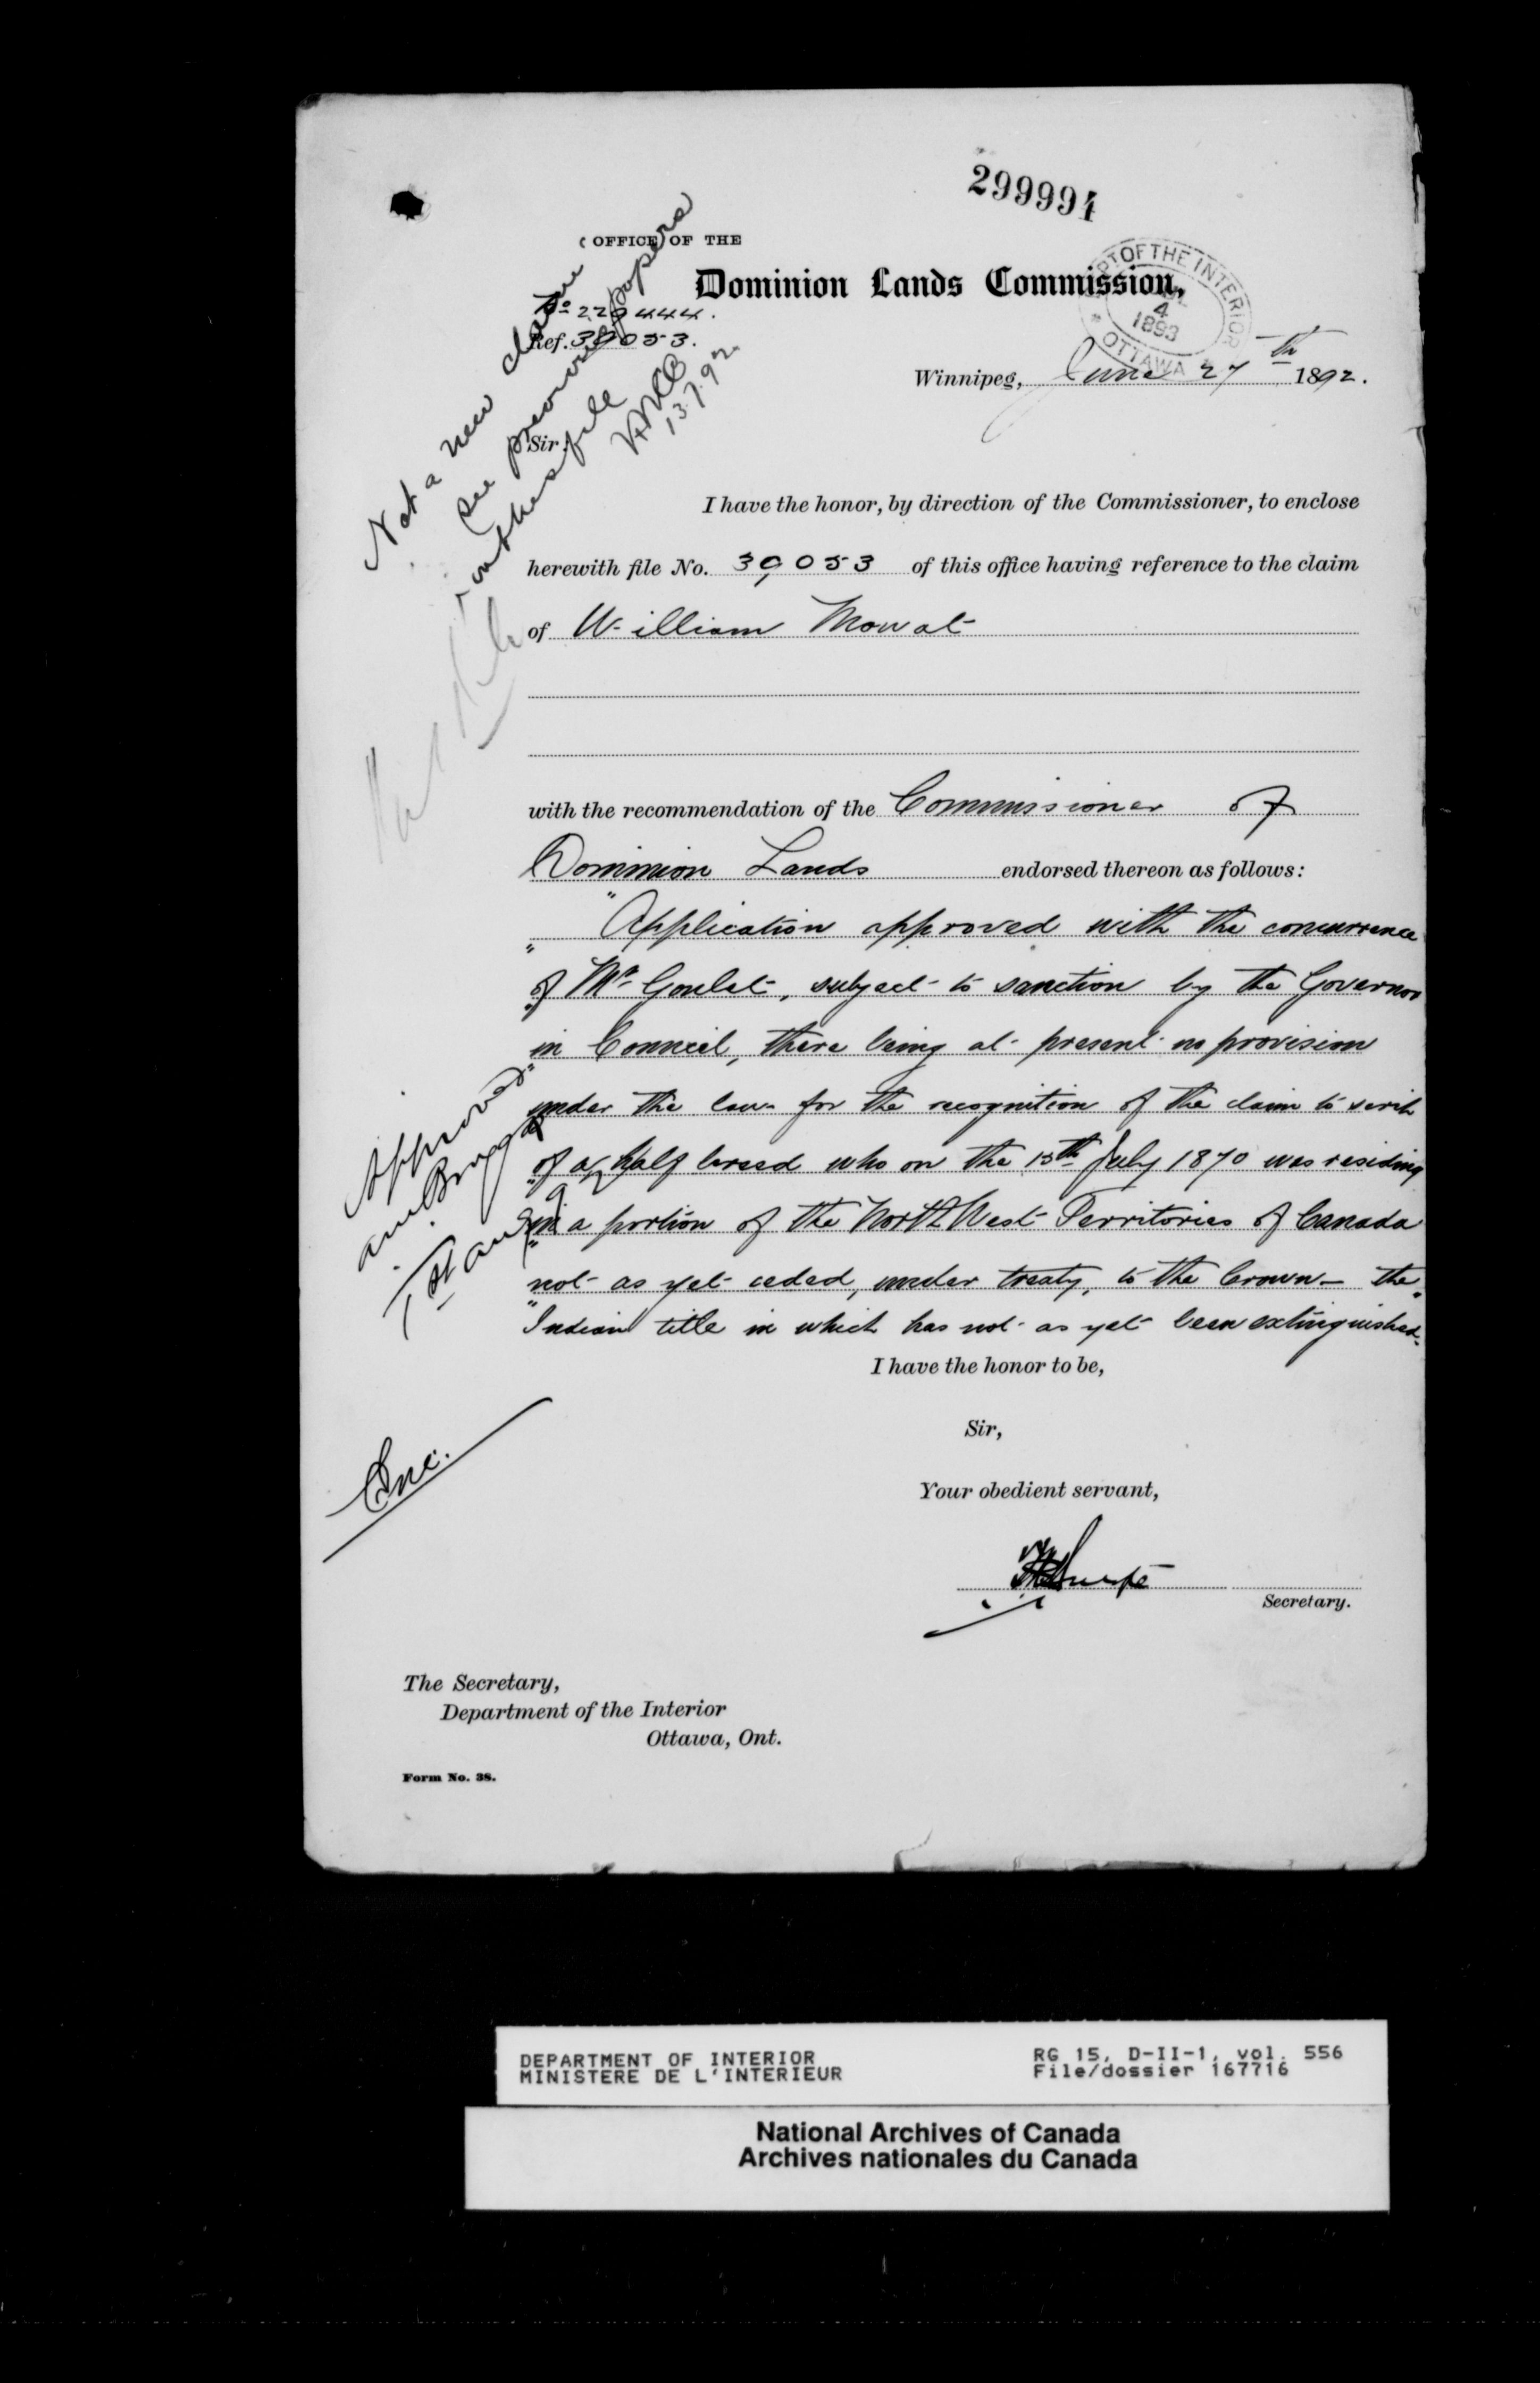 299994
OFFICE OF THE
Dominion Lands Commission,
DEPT OF THE INTERIOR
4
1893
OTTAWA
No 229444.
Ref. 39053.
Winnipeg, June 27th 1892.
Not a new claim
see previous papers
on this file
13.7.92
Sir,
I have the honor, by direction of the Commissioner, to enclose
herewith file No. 39053 of this office having reference to the claim
of William Mowat
with the recommendation of the Commissioner of
Dominion Lands endorsed thereon as follows:
"Application approved with the concurrence
"of Mr Goulet, subject to sanction by the Governor
"in Council, there being at present no provision
"under the law for the recognition of the claim to scrip
"of a half breed who on the 15th July 1870 was residing
"in a portion of the North West Territories of Canada
"not as yet ceded, under treaty, to the Crown - the
"Indian title in which has not as yet been extinguished."
Approved
1st Aug
I have the honor to be,
Sir,
Your obedient servant,
Enc.
Secretary.
The Secretary,
Department of the Interior
Ottawa, Ont.
Form No. 38.
DEPARTMENT OF INTERIOR
MINISTERE DE L'INTERIEUR
RG 15, D-II-1, vol. 556
File/dossier 167716
National Archives of Canada
Archives nationales du Canada